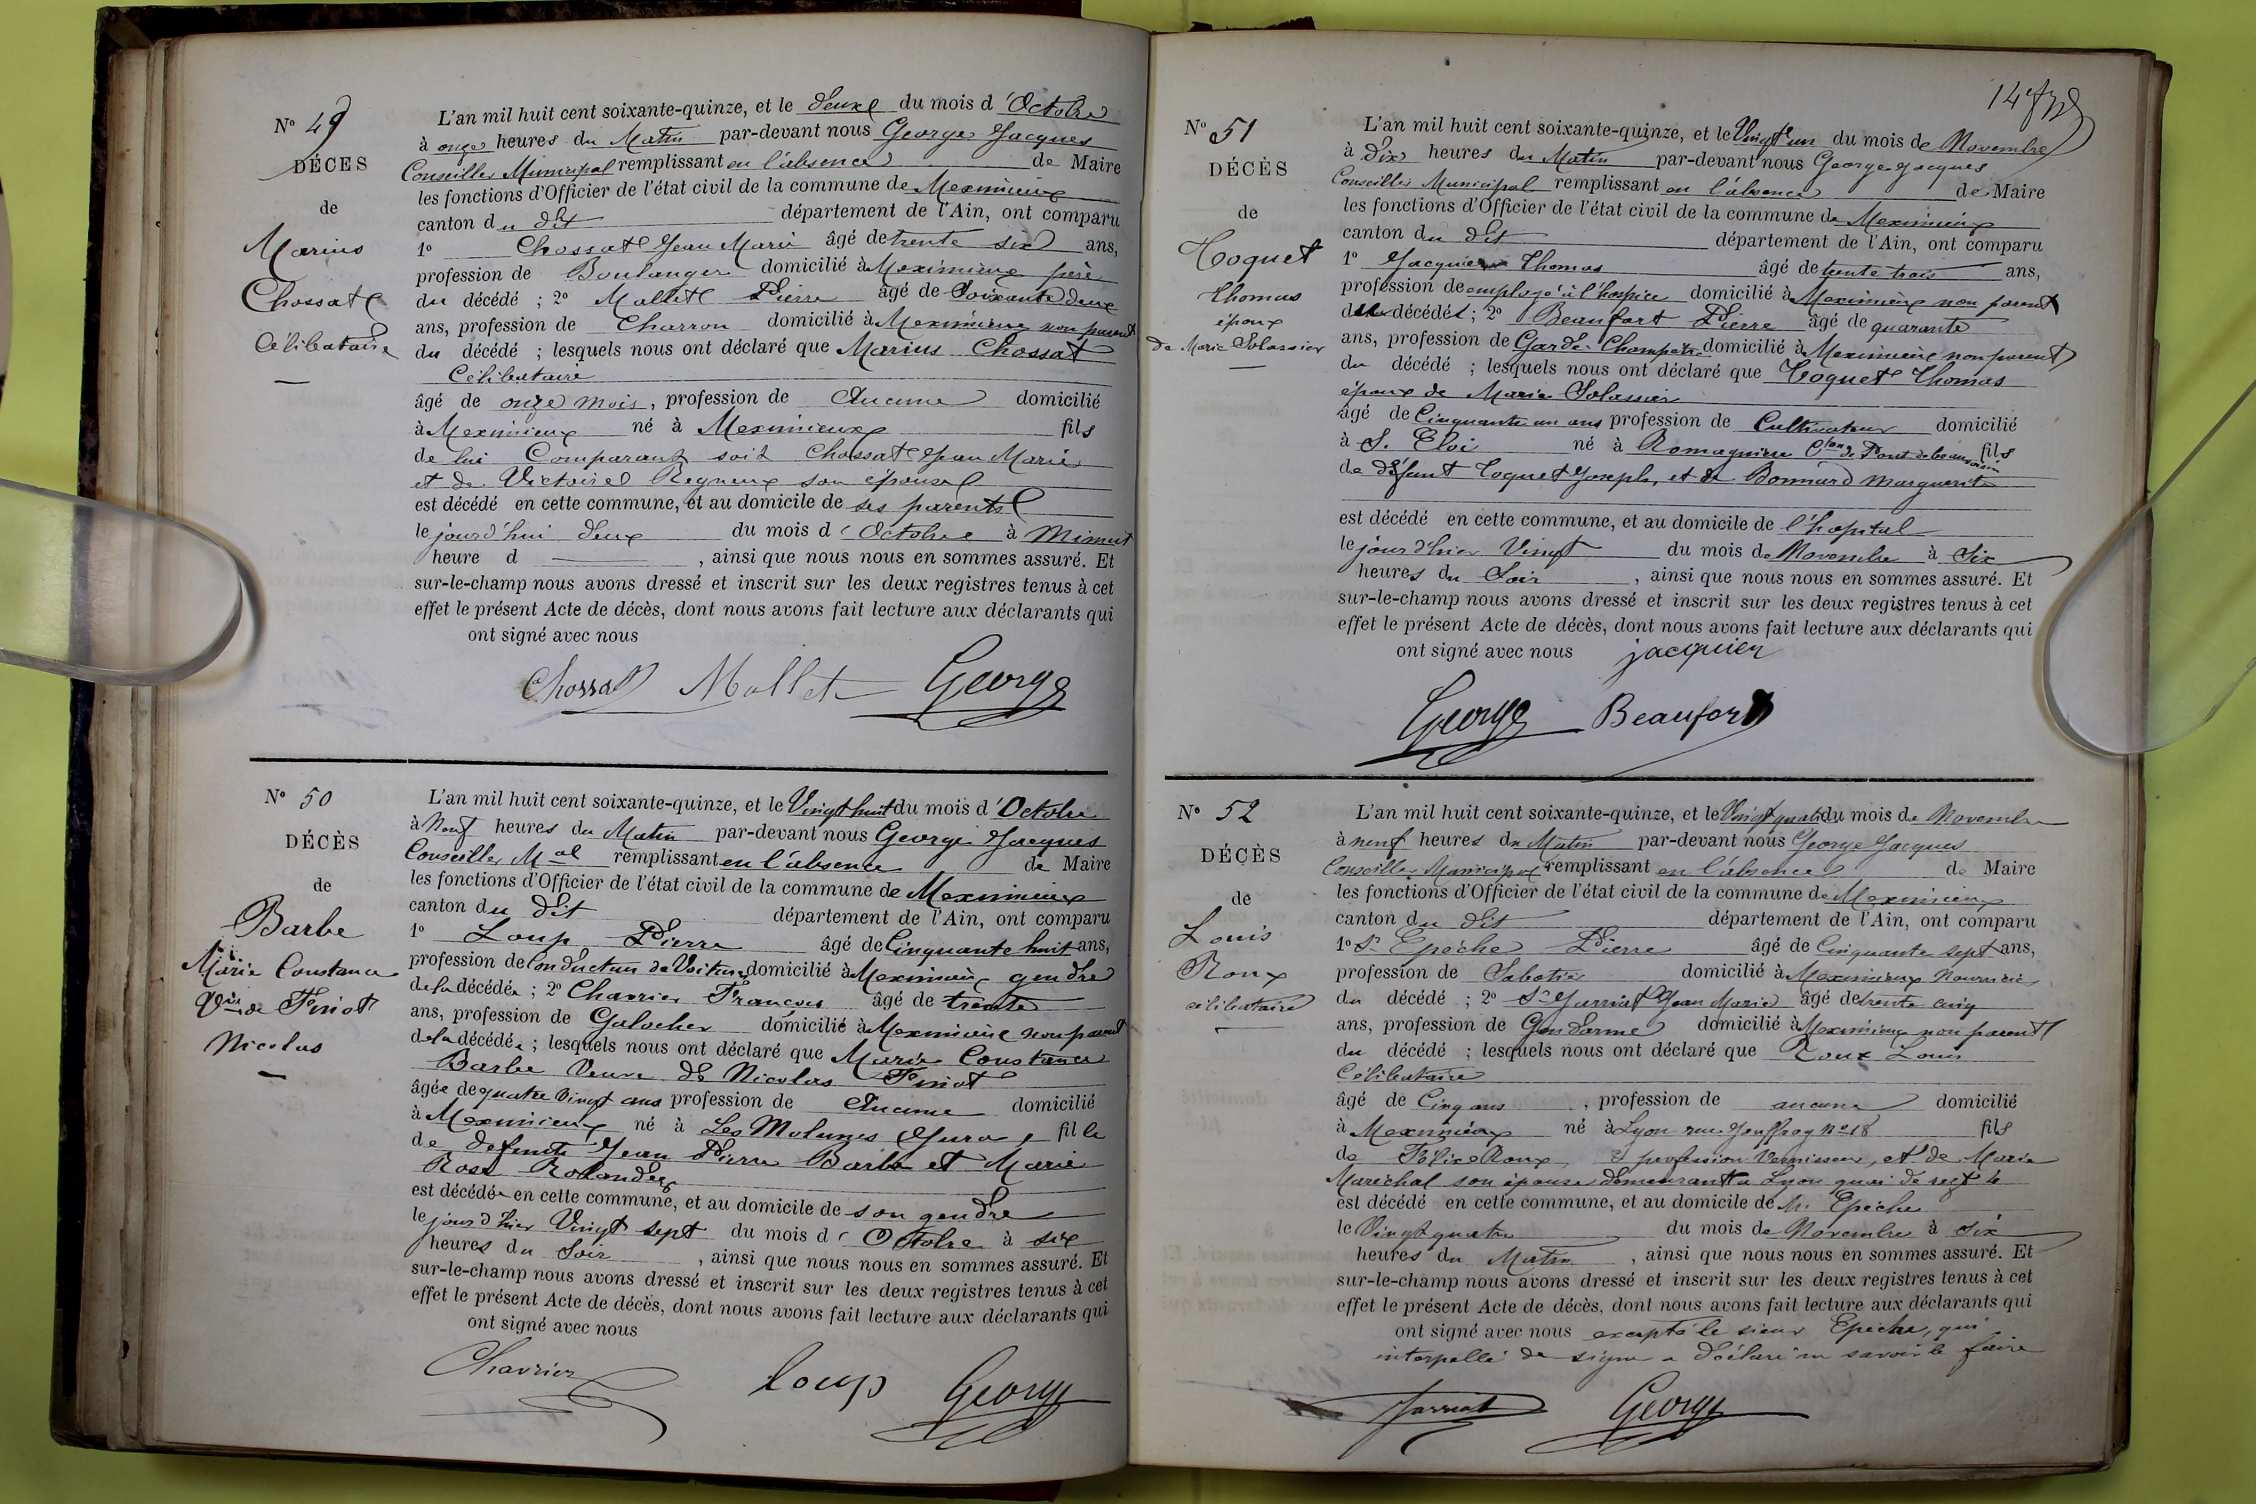 N° 49
DÉCES
de
Marius
Chossat
Célibataire
L'an mil huit cent soixante-quinze, et le deux du mois d'Octobre
à onze heures du Matin par-devant nous George Jacques
Conseiller Municipal remplissant en l'absence de Maire
les fonctions d'Officier de l'état civil de la commune de Meximieux
canton du dit département de l'Ain, ont comparu
1° Chossat Jean Marie âgé de trente six ans,
profession de Boulanger domicilié à Meximieux père
du décédé ; 2° Mollet Pierre âgé de Soixante deux
ans, profession de Charron domicilié à Meximieux non parent
du décédé ; lesquels nous ont déclaré que Marius Chossat
Célibataire
âgé de onze mois, profession de Aucune domicilié
à Meximieux né à Meximieux fils
de lui Comparant soit Chossat Jean Marie
et de Victoire Regneux son épouse
est décédé en cette commune, et au domicile de ses parents
le jourd'hui deux du mois d'Octobre à Minuit
heure d , ainsi que nous nous en sommes assuré. Et
sur-le-champ nous avons dressé et inscrit sur les deux registres tenus à cet
effet le présent Acte de décès, dont nous avons fait lecture aux déclarants qui
ont signé avec nous
Chossat Mollet George
N° 50
DÉCÈS
de
Barbe
Marie Constance
Vve de Finot
Nicolas
L'an mil huit cent soixante-quinze, et le Vingt huit du mois d'Octobre
à Neuf heures du Matin par-devant nous George Jacques
Conseiller Mal remplissant en l'absence de Maire
les fonctions d'Officier de l'état civil de la commune de Meximieux
canton du dit département de l'Ain, ont comparu
1° Loup Pierre âgé de Cinquante huit ans,
profession de Conducteur de Voitures domicilié à Meximieux gendre
de la décédée ; 2° Charrier François âgé de trente
ans, profession de Galocher domicilié à Meximieux non parent
de la décédée ; lesquels nous ont déclaré que Marie Constance
Barbe Veuve de Nicolas Finot
âgée de quatre Vingt ans profession de Aucune domicilié
à Meximieux né à Les Molunes Jura, fille
de defunts Jean Pierre Barbe et Marie
Rose Rolandez
est décédée en cette commune, et au domicile de son gendre
le jour d'hier Vingt sept du mois d'Octobre à six
heures du Soir , ainsi que nous nous en sommes assuré. Et
sur-le-champ nous avons dressé et inscrit sur les deux registres tenus à cet
effet le présent Acte de décès, dont nous avons fait lecture aux déclarants qui
ont signé avec nous
Charrier Loup George
N° 51
DÉCÈS
de
Coquet
Thomas
époux
de Marie Solassier
L'an mil huit cent soixante-quinze, et le Vingt un du mois de Novembre
à Dix heures du Matin par-devant nous George Jacques
Conseiller Municipal remplissant en l'absence de Maire
les fonctions d'Officier de l'état civil de la commune de Meximieux
canton du dit département de l'Ain, ont comparu
1° Jacquier Thomas âgé de trente trois ans,
profession de employé à l'hospice domicilié à Meximieux non parent
du décédé ; 2° Beaufort Pierre âgé de quarante
ans, profession de Garde Champêtre domicilié à Meximieux non parent
du décédé ; lesquels nous ont déclaré que Coquet Thomas
époux de Marie Solassier
âgé de Cinquante un ans profession de Cultivateur domicilié
à St Eloi né à Romagnieu Cton de Pont de beauvoisin fils
de défunt Coquet Joseph, et de Bonnard Marguerite
est décédé en cette commune, et au domicile de l'hopital
le jour d'hier Vingt du mois de Novembre à Six
heures du Soir , ainsi que nous nous en sommes assuré. Et
sur-le-champ nous avons dressé et inscrit sur les deux registres tenus à cet
effet le présent Acte de décès, dont nous avons fait lecture aux déclarants qui
ont signé avec nous jacquier
George Beaufort
N° 52
DÉCÈS
de
Louis
Roux
célibataire
L'an mil huit cent soixante-quinze, et le Vingt quatre du mois de Novembre
à neuf heures du Matin par-devant nous George Jacques
Conseiller Municipal remplissant en l'absence de Maire
les fonctions d'Officier de l'état civil de la commune de Meximieux
canton du dit département de l'Ain, ont comparu
1° Sr Epèche Pierre âgé de Cinquante sept ans,
profession de Sabotier domicilié à Meximieux Nourricier
du décédé ; 2° Sr Jarriat Jean Marie âgé de trente cinq
ans, profession de Gendarme domicilié à Meximieux non parent
du décédé ; lesquels nous ont déclaré que Roux Louis
Célibataire
âgé de Cinq ans , profession de aucune domicilié
à Meximieux né à Lyon rue Jouffroy N° 18 fils
de Félix Roux, profession Vernisseur, et de Marie
Maréchal son épouse demeurant à Lyon quai de
est décédé en cette commune, et au domicile de Mr Epèche
le Vingt quatre du mois de Novembre à Six
heures du Matin , ainsi que nous nous en sommes assuré. Et
sur-le-champ nous avons dressé et inscrit sur les deux registres tenus à cet
effet le présent Acte de décès, dont nous avons fait lecture aux déclarants qui
ont signé avec nous excepté le sieur Epèche, qui
interpellé de signer a déclaré ne savoir le faire
Jarriat George